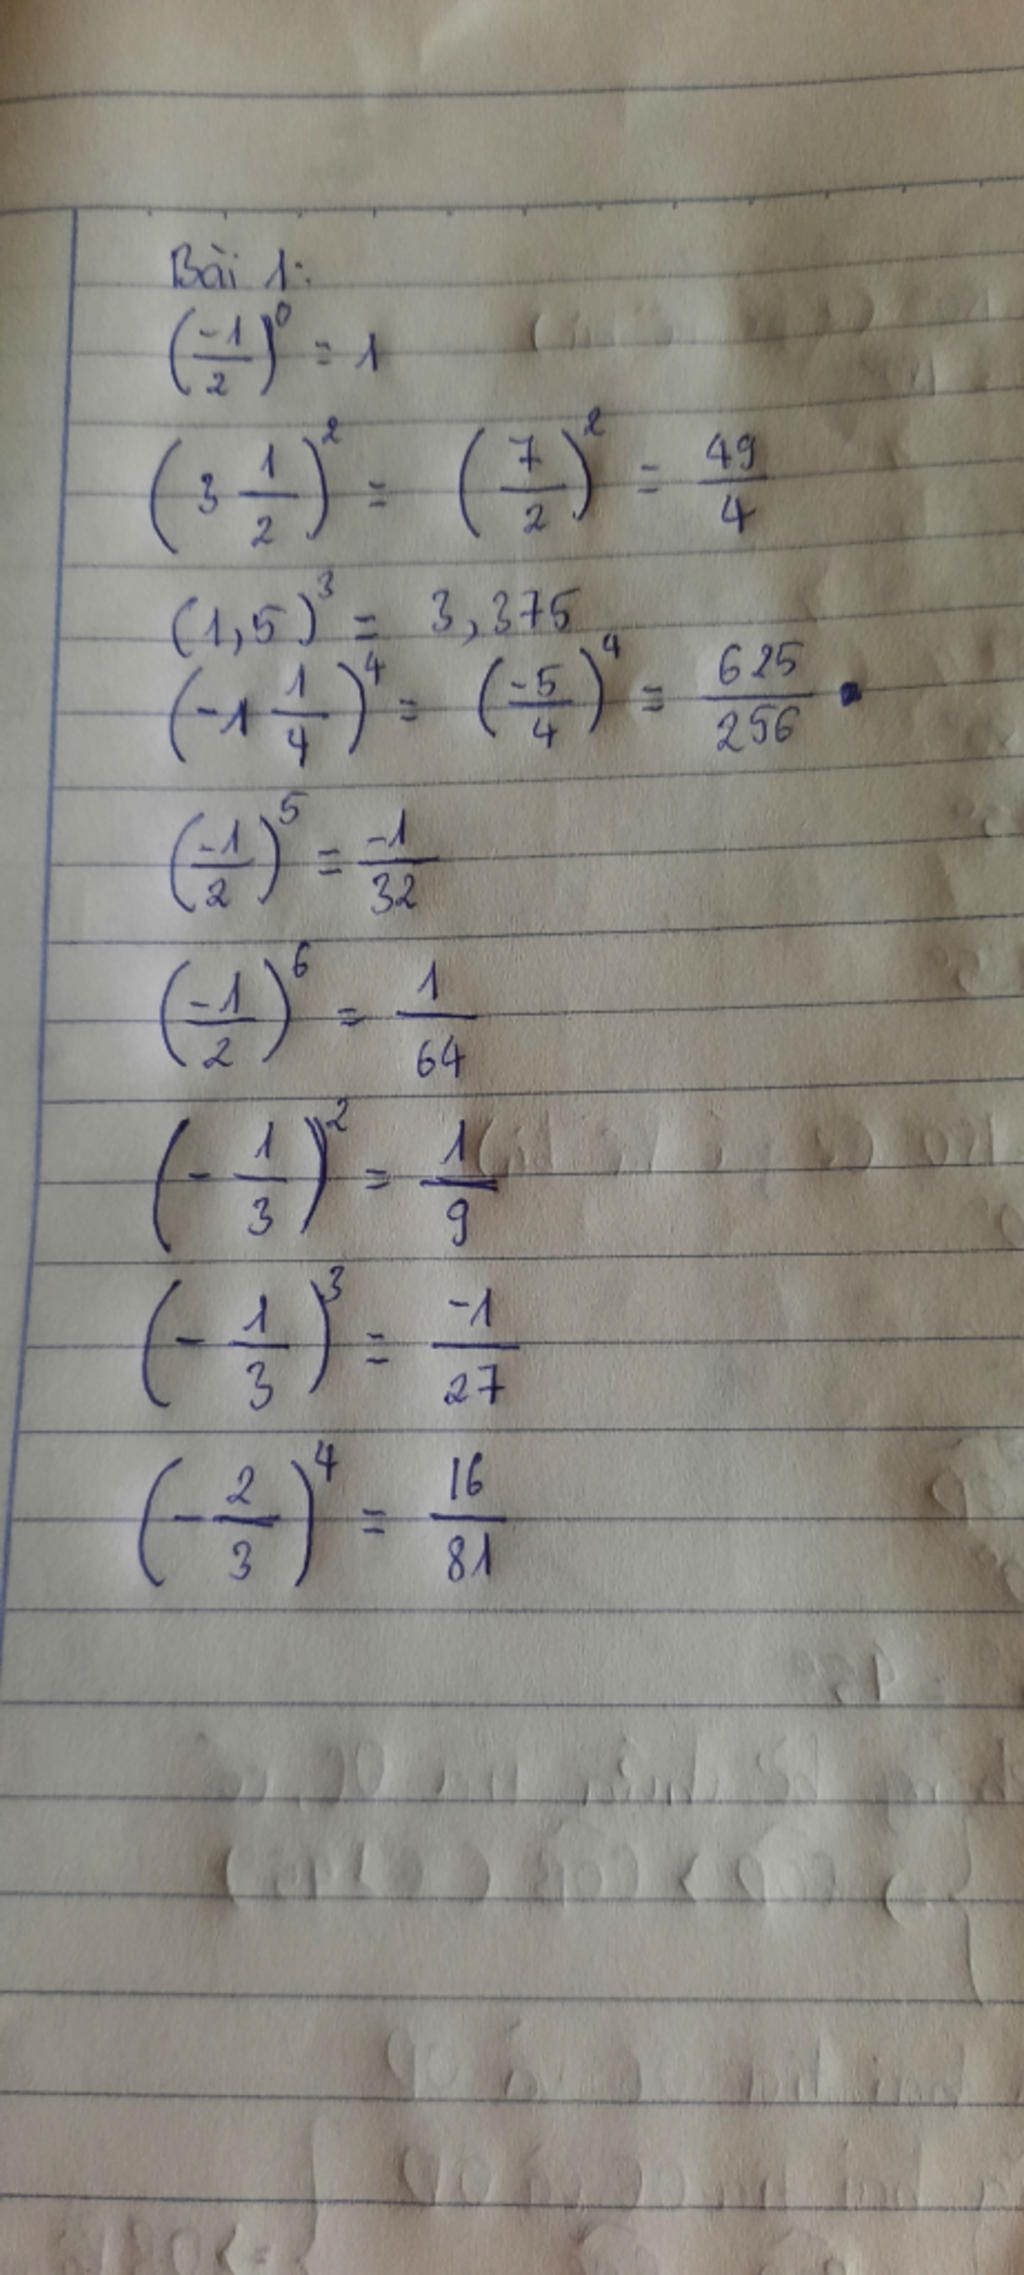 Bài 1:
(-1/2)^0 = 1
(3 1/2)^2 = (7/2)^2 = 49/4
(1,5)^3 = 3,375
(-1 1/4)^4 = (-5/4)^4 = 625/256
(-1/2)^5 = -1/32
(-1/2)^6 = 1/64
(- 1/3)^2 = 1/9
(- 1/3)^3 = -1/27
(- 2/3)^4 = 16/81